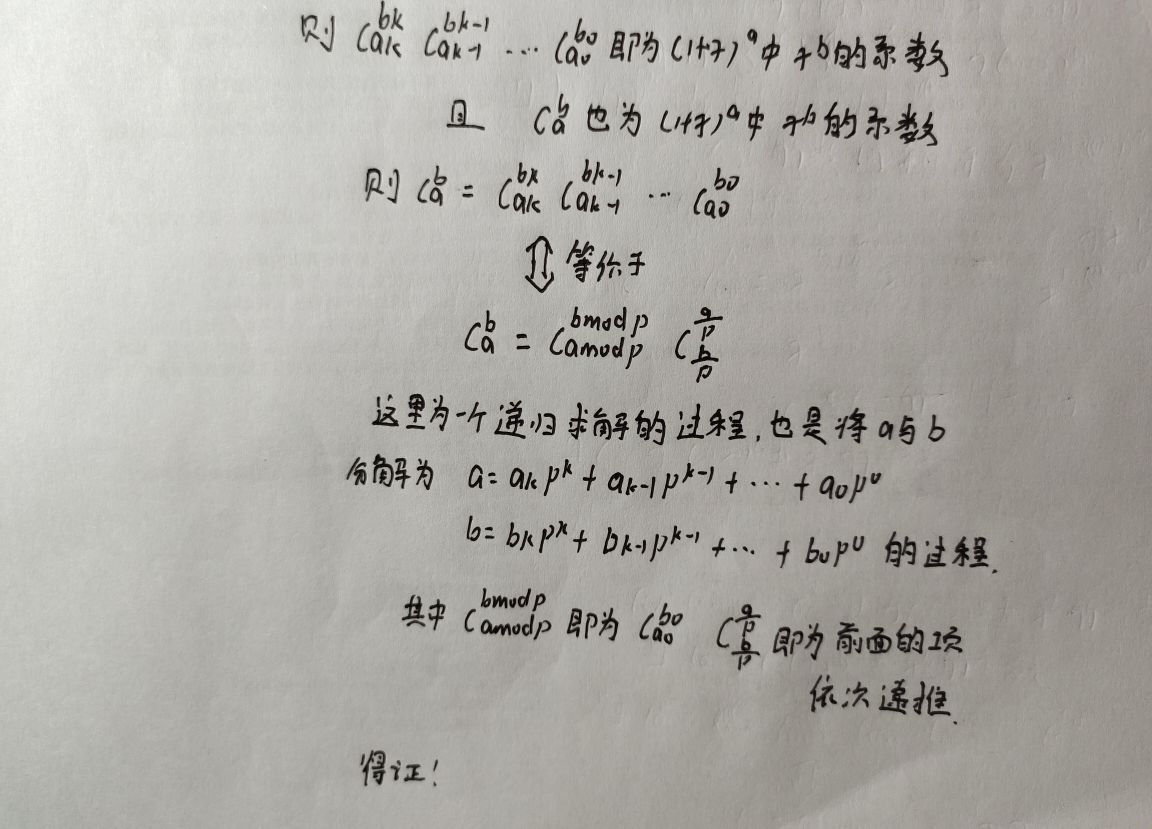 则 C_{ak}^{bk} C_{ak-1}^{bk-1} ... C_{a0}^{b0} 即为 (1+x)^a 中 x^b 的系数
且 C_a^b 也为 (1+x)^a 中 x^b 的系数
则 C_a^b = C_{ak}^{bk} C_{ak-1}^{bk-1} ... C_{a0}^{b0}
⇕ 等价于
C_a^b = C_{amodp}^{bmodp} C_{b/p}^{a/p}
这里为一个递归求解的过程,也是将a与b
分解为 a=akp^k + ak-1p^{k-1} + ... + a0p^0
b=bkp^k + bk-1p^{k-1} + ... + b0p^0 的过程.
其中 C_{amodp}^{bmodp} 即为 C_{a0}^{b0} C_{b/p}^{a/p} 即为前面的项
依次递推.
得证!